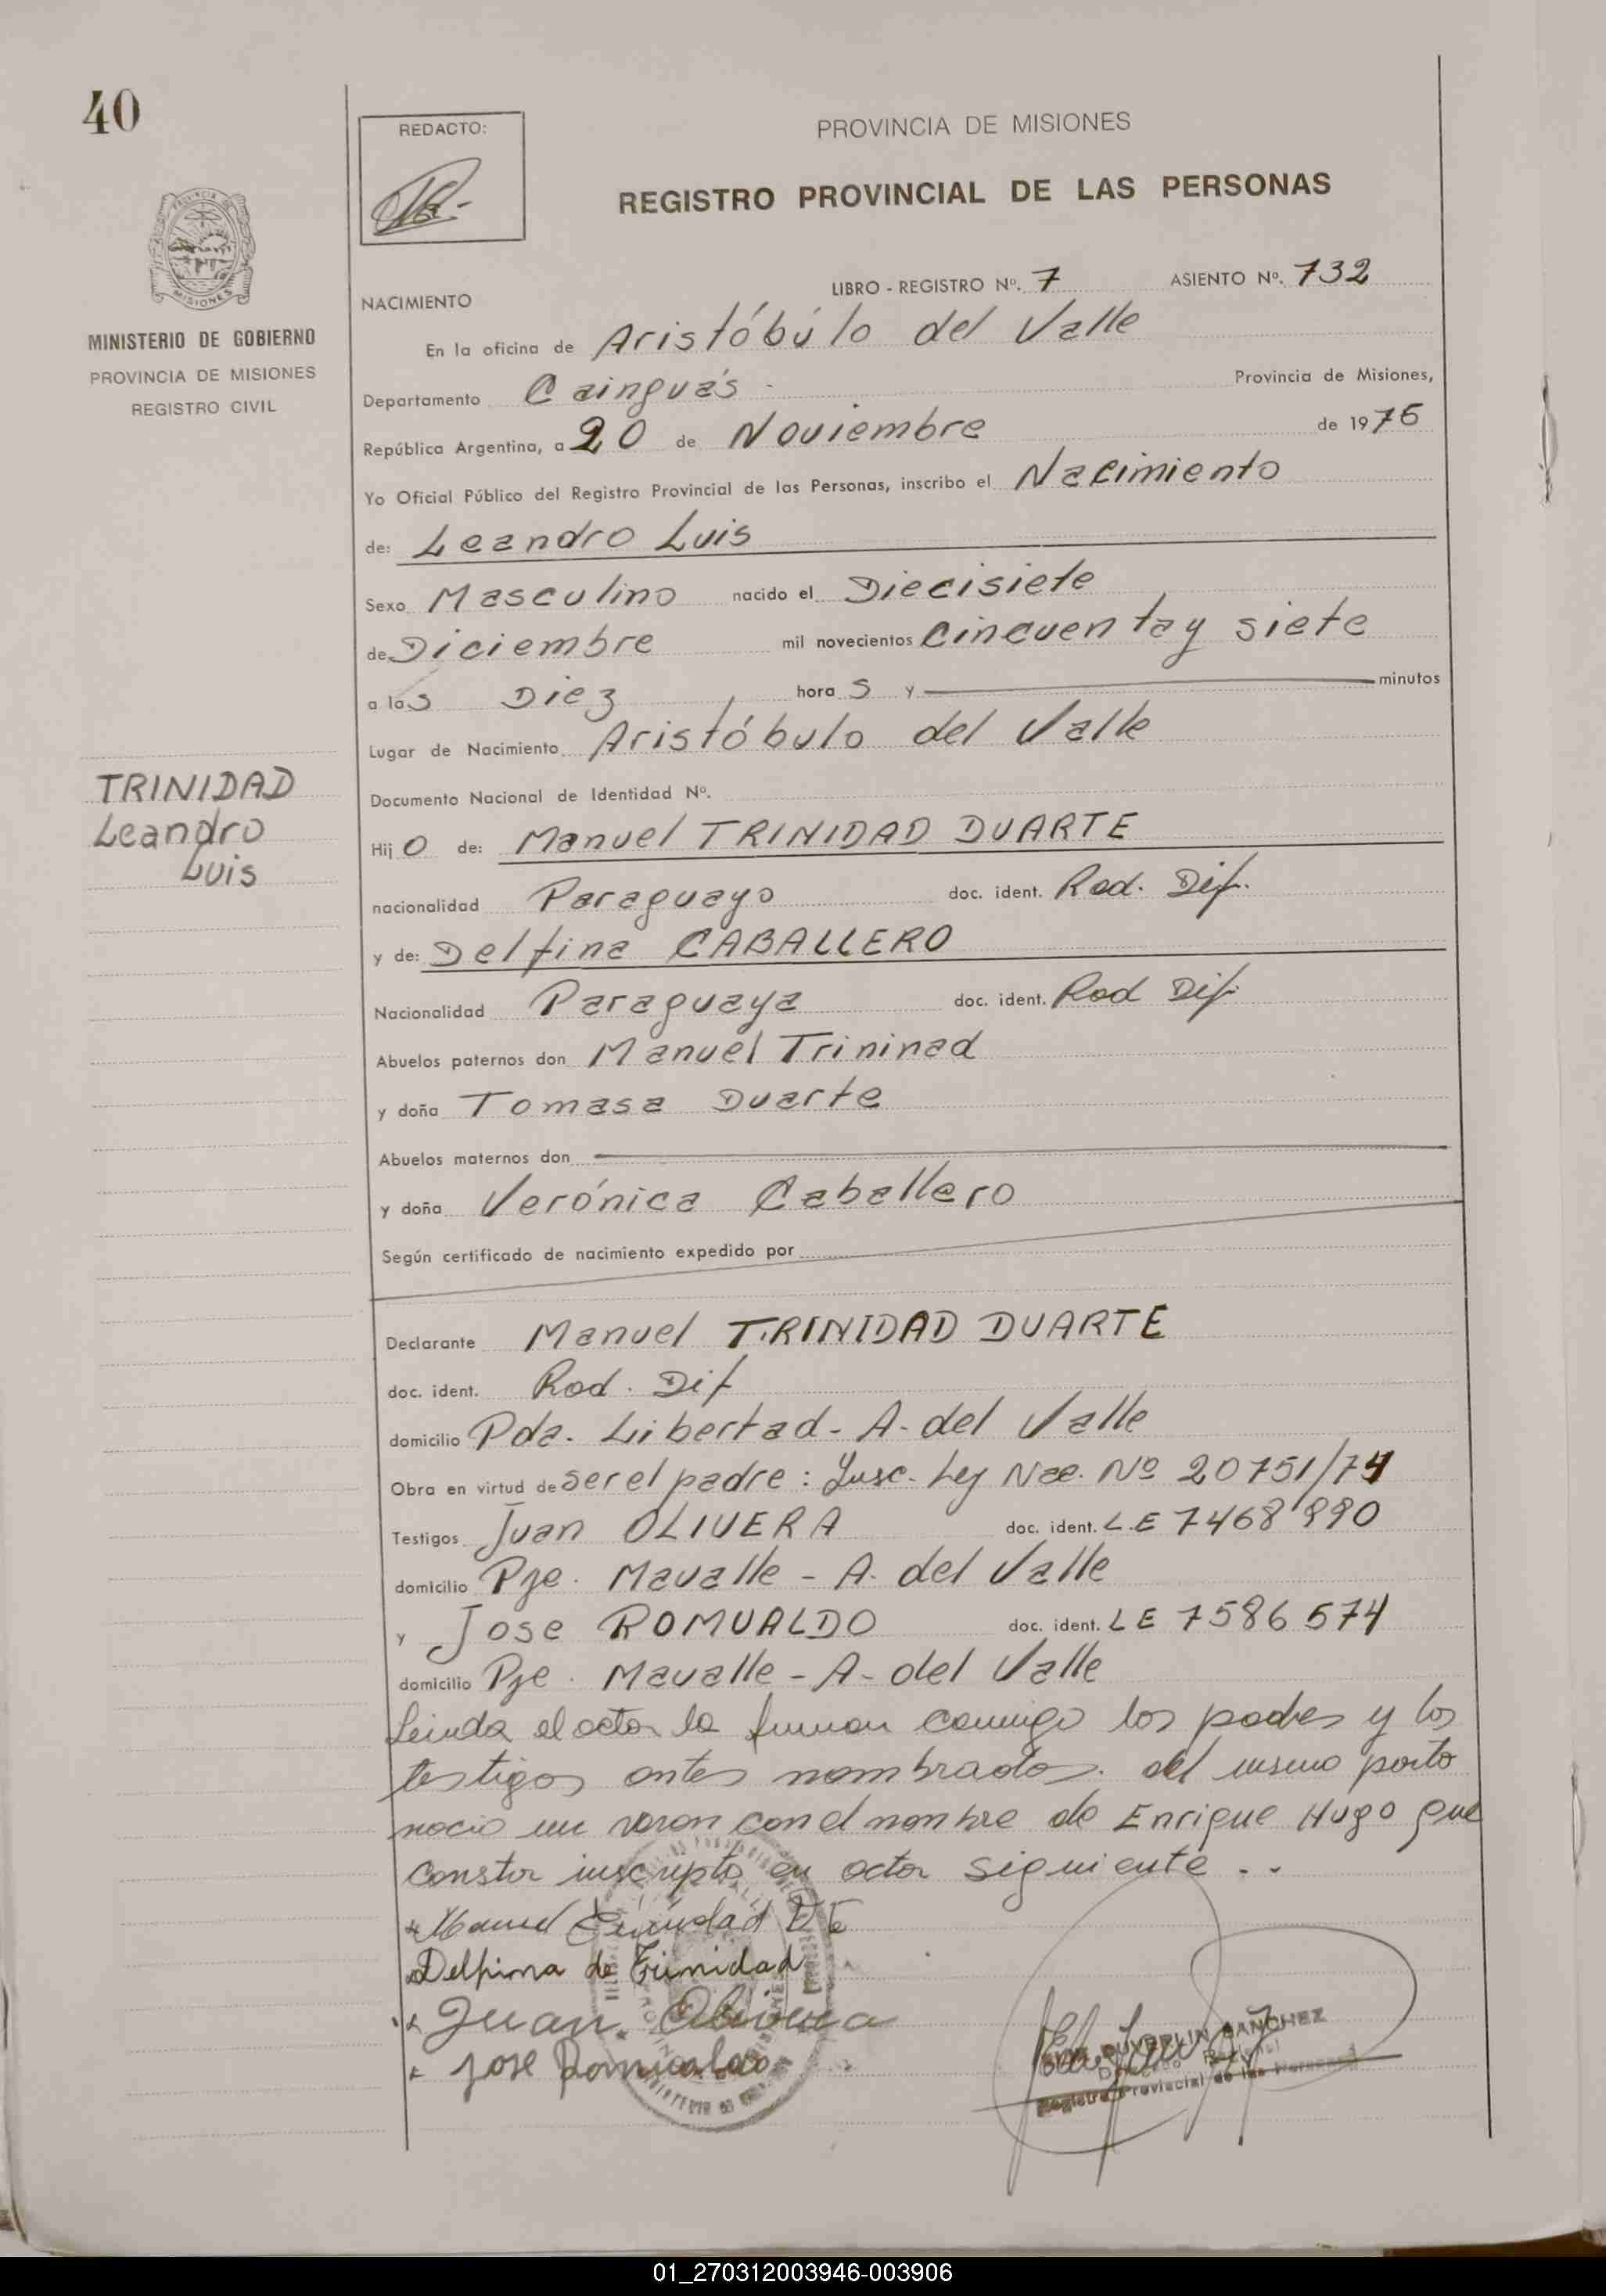 40
REDACTO:
PROVINCIA DE MISIONES
REGISTRO PROVINCIAL DE LAS PERSONAS
MISIONES
MINISTERIO DE GOBIERNO
PROVINCIA DE MISIONES
REGISTRO CIVIL
LIBRO - REGISTRO Nº. 7 ASIENTO Nº. 732
NACIMIENTO
En la oficina de Aristóbúlo del Valle
Departamento Cainguás - Provincia de Misiones,
República Argentina, a 20 de Noviembre de 1976
Yo Oficial Público del Registro Provincial de las Personas, inscribo el Nacimiento
de: Leandro Luis
Sexo Masculino nacido el Diecisiete
de Diciembre mil novecientos cincuenta y siete
a las Diez hora s y minutos
Lugar de Nacimiento Aristóbulo del Valle
TRINIDAD
Leandro
Luis
Documento Nacional de Identidad Nº.
Hij o de: Manuel TRINIDAD DUARTE
nacionalidad Paraguayo doc. ident. Rad. Dif.
y de: Delfina CABALLERO
Nacionalidad Paraguaya doc. ident. Rad Dif.
Abuelos paternos don Manuel Trininad
y doña Tomasa Duarte
Abuelos maternos don
y doña Verónica Caballero
Según certificado de nacimiento expedido por
Declarante Manuel TRINIDAD DUARTE
doc. ident. Rad. Dif
domicilio Pda. Libertad - A. del Valle
Obra en virtud de ser el padre: Insc. Ley Nac. Nº 20751/74
Testigos Juan OLIVERA doc. ident. L.E 7468990
domicilio Pje. Mavalle - A. del Valle
y Jose ROMUALDO doc. ident. LE 7586574
domicilio Pje. Mavalle - A- del Valle
Leida el acta la firman conmigo los padres y los
testigos antes nombrados. del mismo parto
nacio un varon con el nombre de Enrique Hugo que
consta inscripto en acta siguiente . .
Manuel Trinidad DTe
Delfina de Trinidad
Juan Olivera
Jose Romualdo
SANCHEZ
Registro Provincial de las Personas
01_270312003946-003906